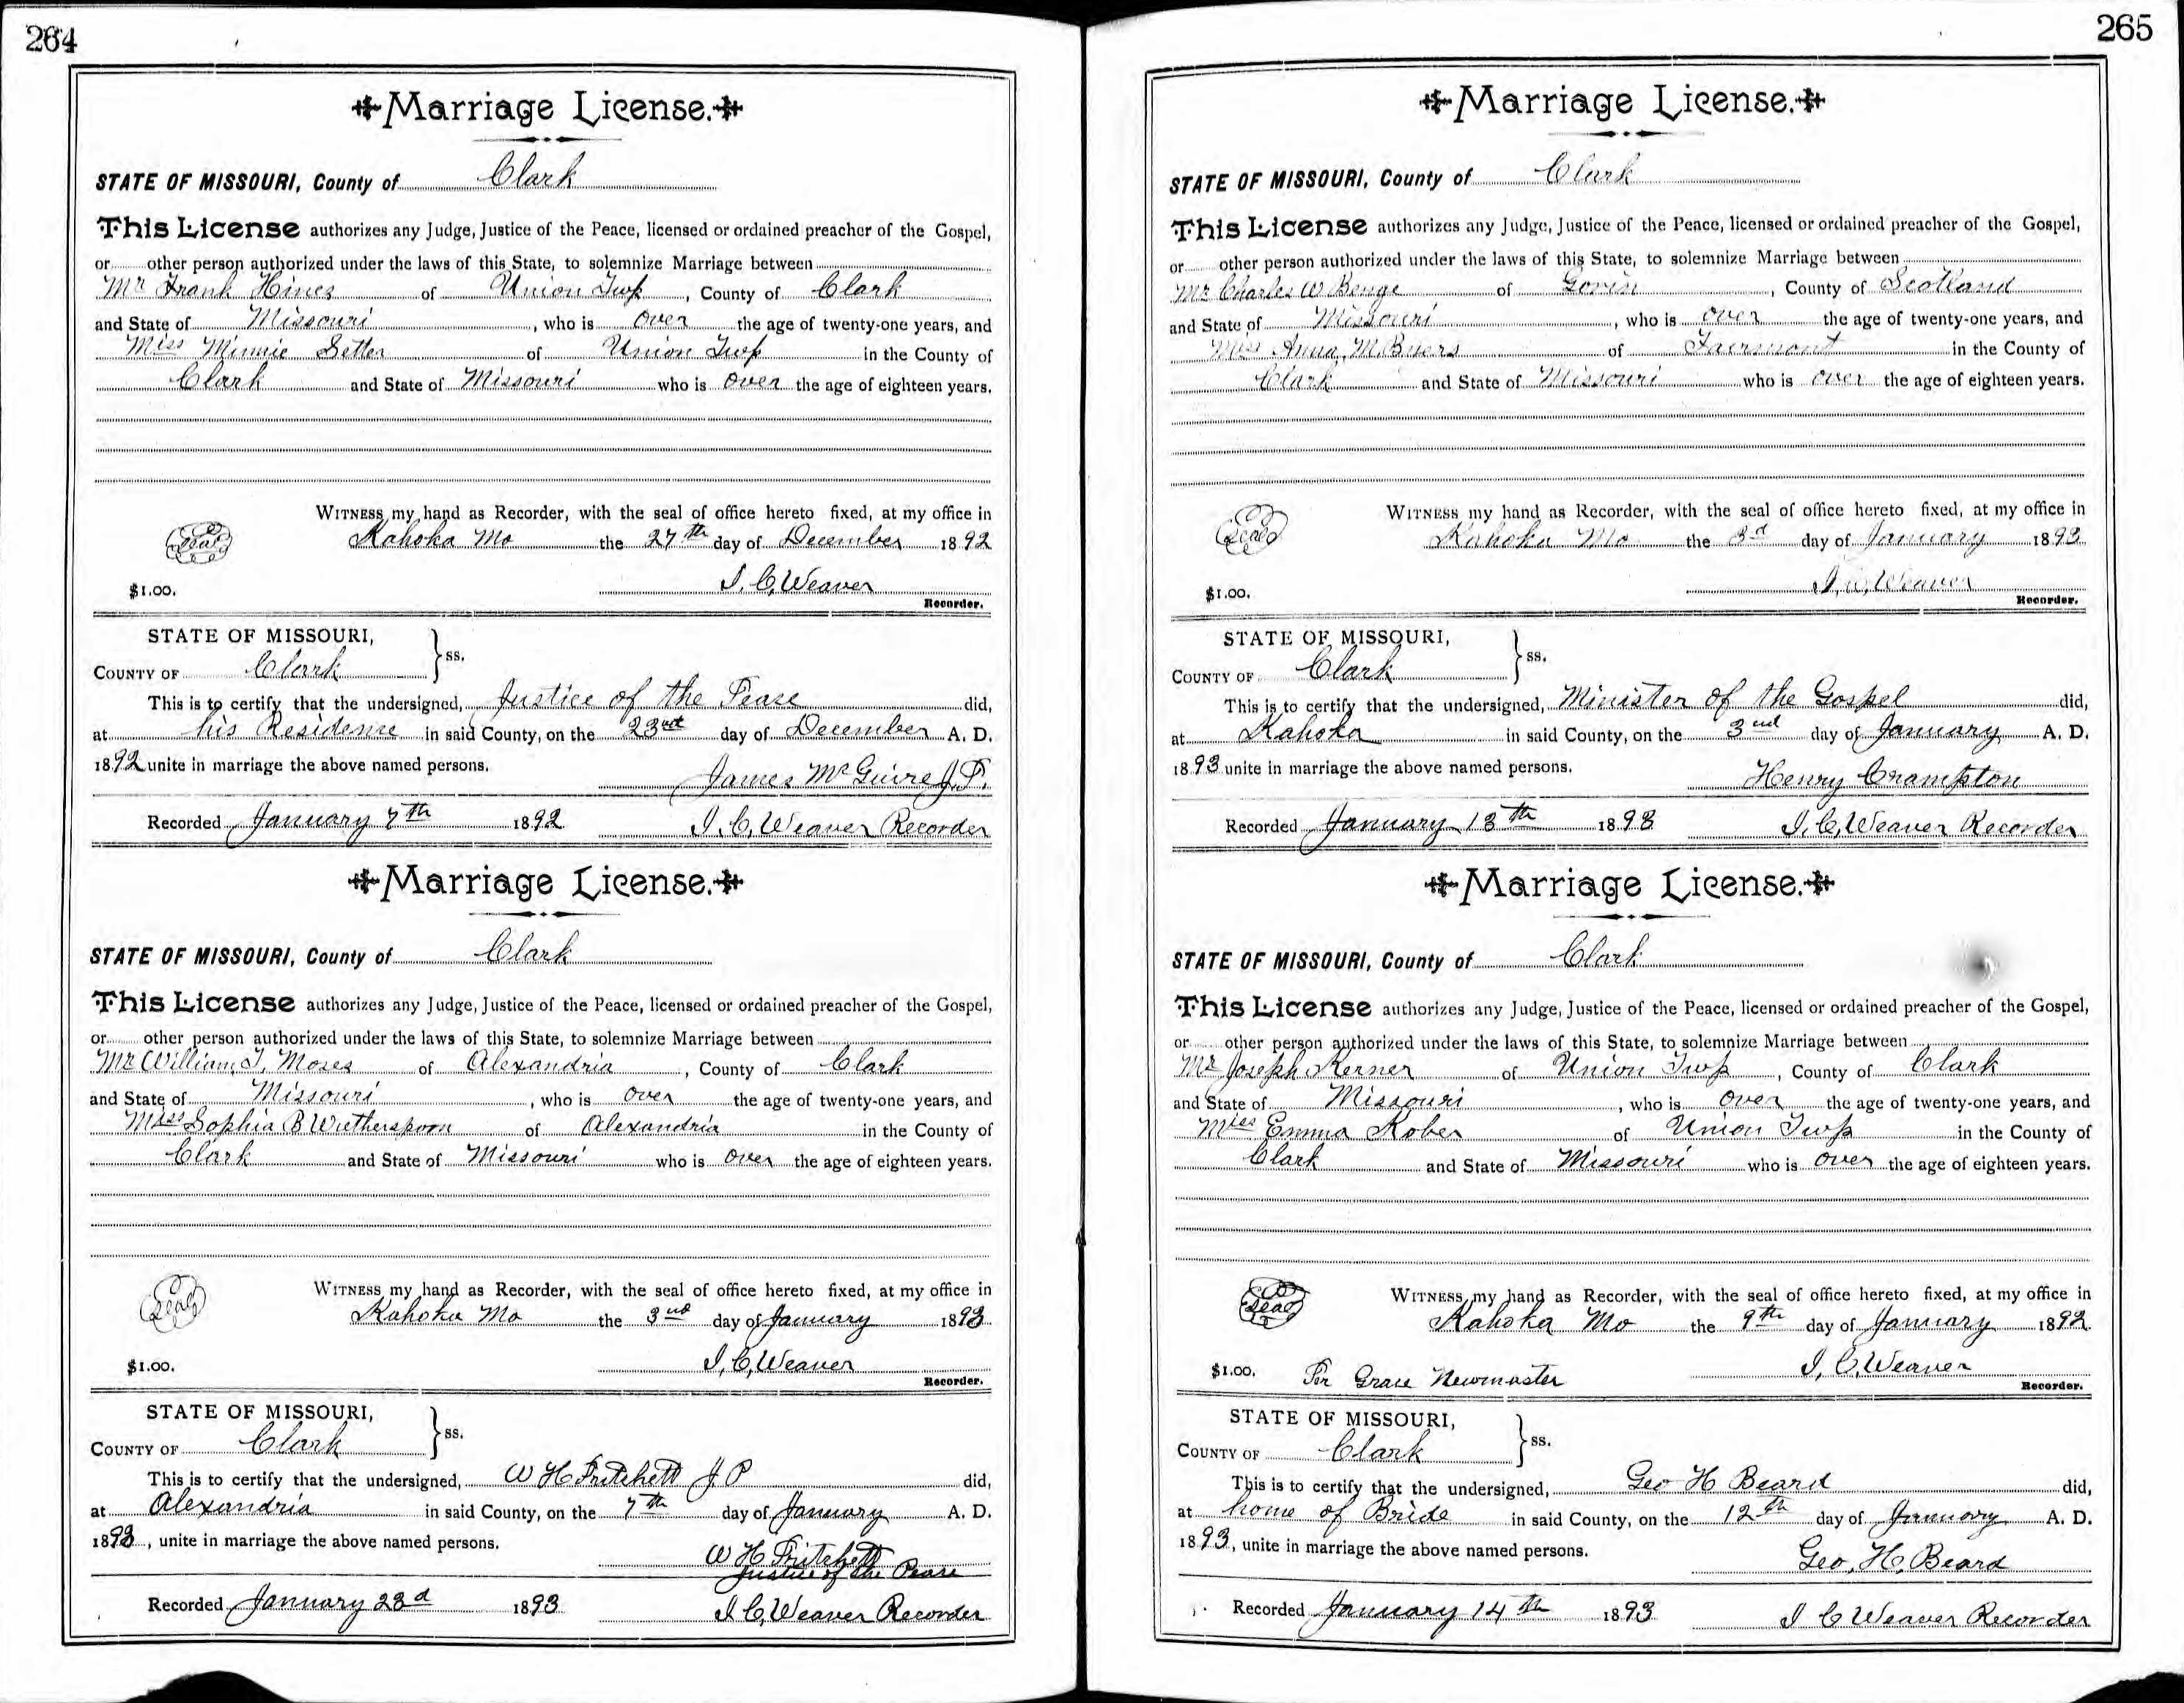 264
Marriage License.
STATE OF MISSOURI, County of Clark
This License authorizes any Judge, Justice of the Peace, licensed or ordained preacher of the Gospel,
or other person authorized under the laws of this State, to solemnize Marriage between
Mr Frank Hines of Union Twp, County of Clark
and State of Missouri, who is over the age of twenty-one years, and
Miss Minnie Setter of Union Twp in the County of
Clark and State of Missouri who is over the age of eighteen years.
WITNESS my hand as Recorder, with the seal of office hereto fixed, at my office in
Seal
Kahoka Mo the 27th day of December 1892
$1.00. I. C. Weaver
Recorder.
STATE OF MISSOURI,
COUNTY OF Clark } ss.
This is to certify that the undersigned, Justice of the Pease did,
at his Residence in said County, on the 23rd day of December A. D.
1892 unite in marriage the above named persons.
James McGuire J. P.
Recorded January 7th 1892 I. C. Weaver Recorder
Marriage License.
STATE OF MISSOURI, County of Clark
This License authorizes any Judge, Justice of the Peace, licensed or ordained preacher of the Gospel,
or other person authorized under the laws of this State, to solemnize Marriage between
Mr William T. Moses of Alexandria, County of Clark
and State of Missouri, who is over the age of twenty-one years, and
Miss Sophia B Wietherspoon of Alexandria in the County of
Clark and State of Missouri who is over the age of eighteen years.
WITNESS my hand as Recorder, with the seal of office hereto fixed, at my office in
Seal
Kahoka Mo the 3rd day of January 1893
$1.00. I. C. Weaver
Recorder.
STATE OF MISSOURI,
COUNTY OF Clark } ss.
This is to certify that the undersigned, W H Fritchett J. P did,
at Alexandria in said County, on the 7th day of January A. D.
1893, unite in marriage the above named persons.
W H Fritchett
Justice of the Pease
Recorded January 23d 1893 I. C. Weaver Recorder
265
Marriage License.
STATE OF MISSOURI, County of Clark
This License authorizes any Judge, Justice of the Peace, licensed or ordained preacher of the Gospel,
or other person authorized under the laws of this State, to solemnize Marriage between
Mr Charles W Benge of Gorin, County of Scotland
and State of Missouri, who is over the age of twenty-one years, and
Miss Anna M. Buers of Fairmont in the County of
Clark and State of Missouri who is over the age of eighteen years.
WITNESS my hand as Recorder, with the seal of office hereto fixed, at my office in
Seal
Kahoka Mo the 3d day of January 1893
$1.00. I. C. Weaver
Recorder.
STATE OF MISSOURI,
COUNTY OF Clark } ss.
This is to certify that the undersigned, Minister of the Gospel did,
at Kahoka in said County, on the 3rd day of January A. D.
1893 unite in marriage the above named persons.
Henry Crampton
Recorded January 13th 1893 I. C. Weaver Recorder
Marriage License.
STATE OF MISSOURI, County of Clark
This License authorizes any Judge, Justice of the Peace, licensed or ordained preacher of the Gospel,
or other person authorized under the laws of this State, to solemnize Marriage between
Mr Joseph Kerner of Union Twp, County of Clark
and State of Missouri, who is over the age of twenty-one years, and
Miss Emma Kober of Union Twp in the County of
Clark and State of Missouri who is over the age of eighteen years.
WITNESS my hand as Recorder, with the seal of office hereto fixed, at my office in
Seal
Kahoka Mo the 9th day of January 1892
$1.00. Per Grace Newmaster I. C. Weaver
Recorder.
STATE OF MISSOURI,
COUNTY OF Clark } ss.
This is to certify that the undersigned, Geo H Beard did,
at home of Bride in said County, on the 12th day of January A. D.
1893, unite in marriage the above named persons.
Geo. H. Beard
Recorded January 14th 1893 I C Weaver Recorder